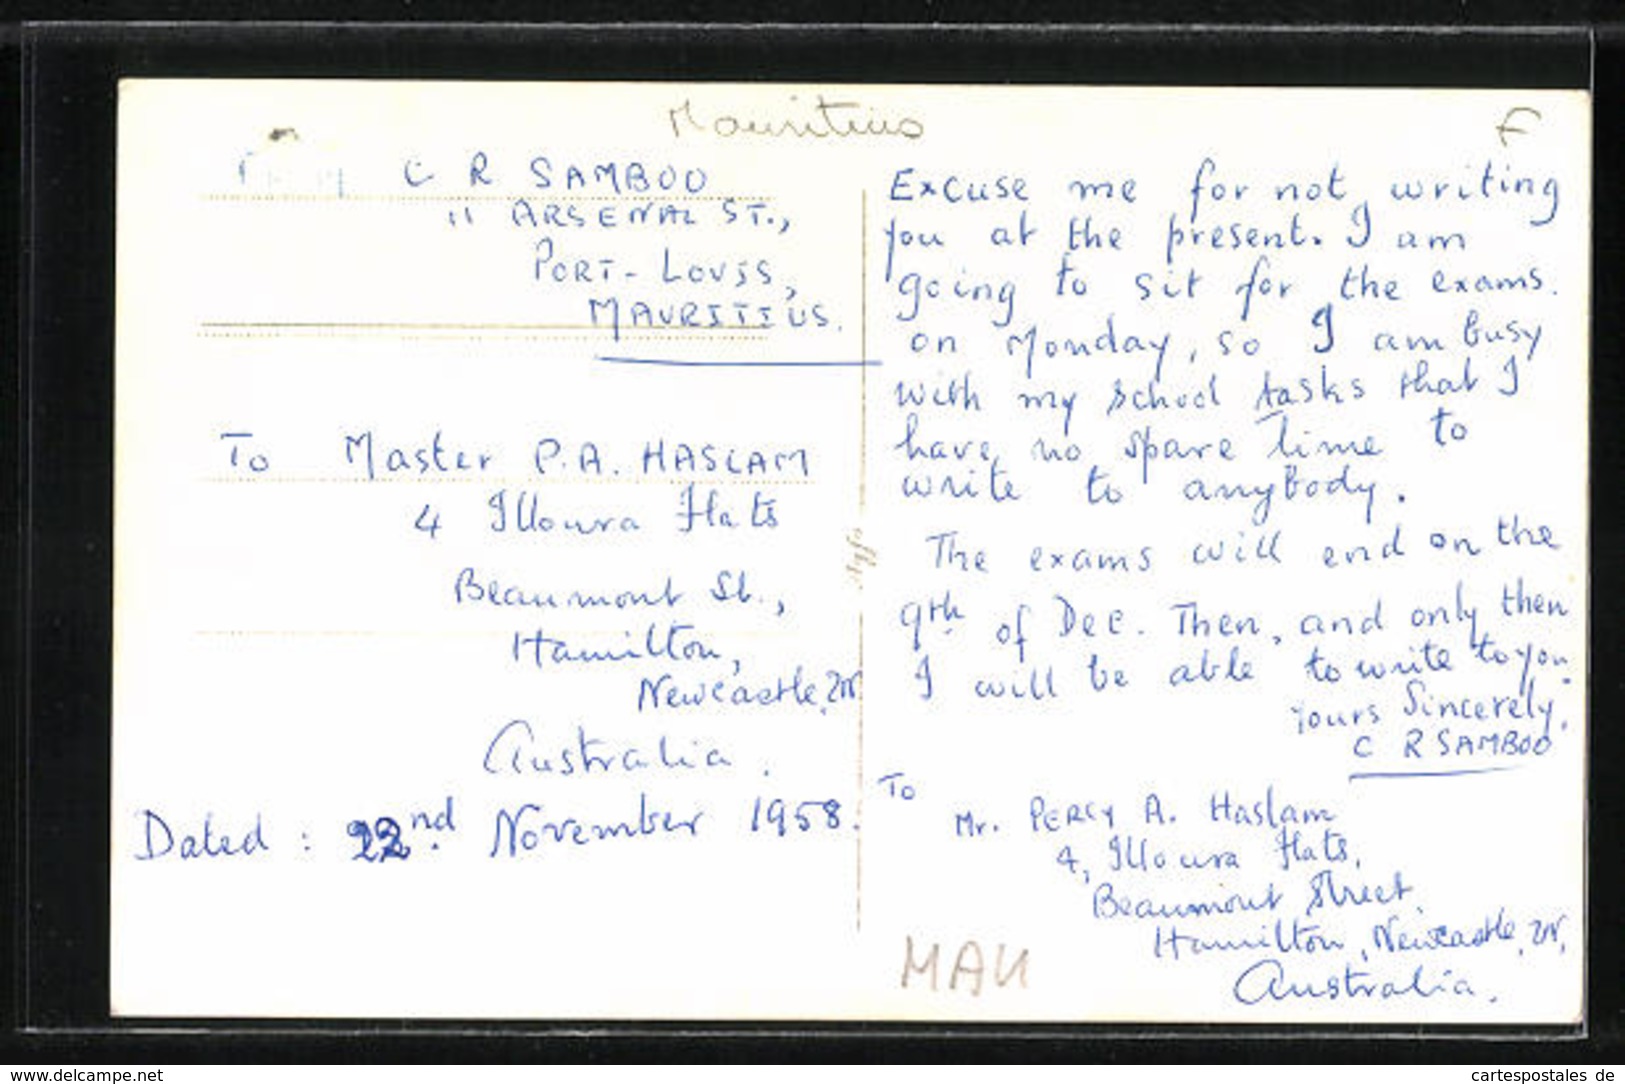 Mauritius
F
C R SAMBOO
11 ARSENAL ST.,
PORT-LOUIS,
MAURITIUS.
To Master P.A. HASLAM
4 Illoura Flats
Beaumont St.,
Hamilton,
Newcastle, 2N
Australia.
Dated : 22nd. November 1958.
Excuse me for not writing
you at the present. I am
going to sit for the exams.
on Monday, so I am busy
with my school tasks that I
have no spare time to
write to anybody.
The exams will end on the
9th of Dec. Then, and only then
I will be able to write to you.
Yours Sincerely,
C R SAMBOO
To
Mr. PERCY A. Haslam
4, Illoura Flats,
Beaumont Street,
Hamilton, Newcastle, 2N,
Australia.
MAU
www.delcampe.net
cartespostales de